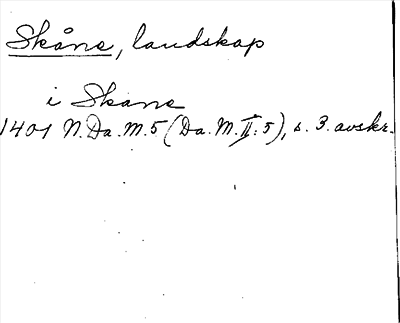 Skåne, landskap
i Skane
1401 N.Da.M.5 (Da.M.II:5), s. 3. avskr.